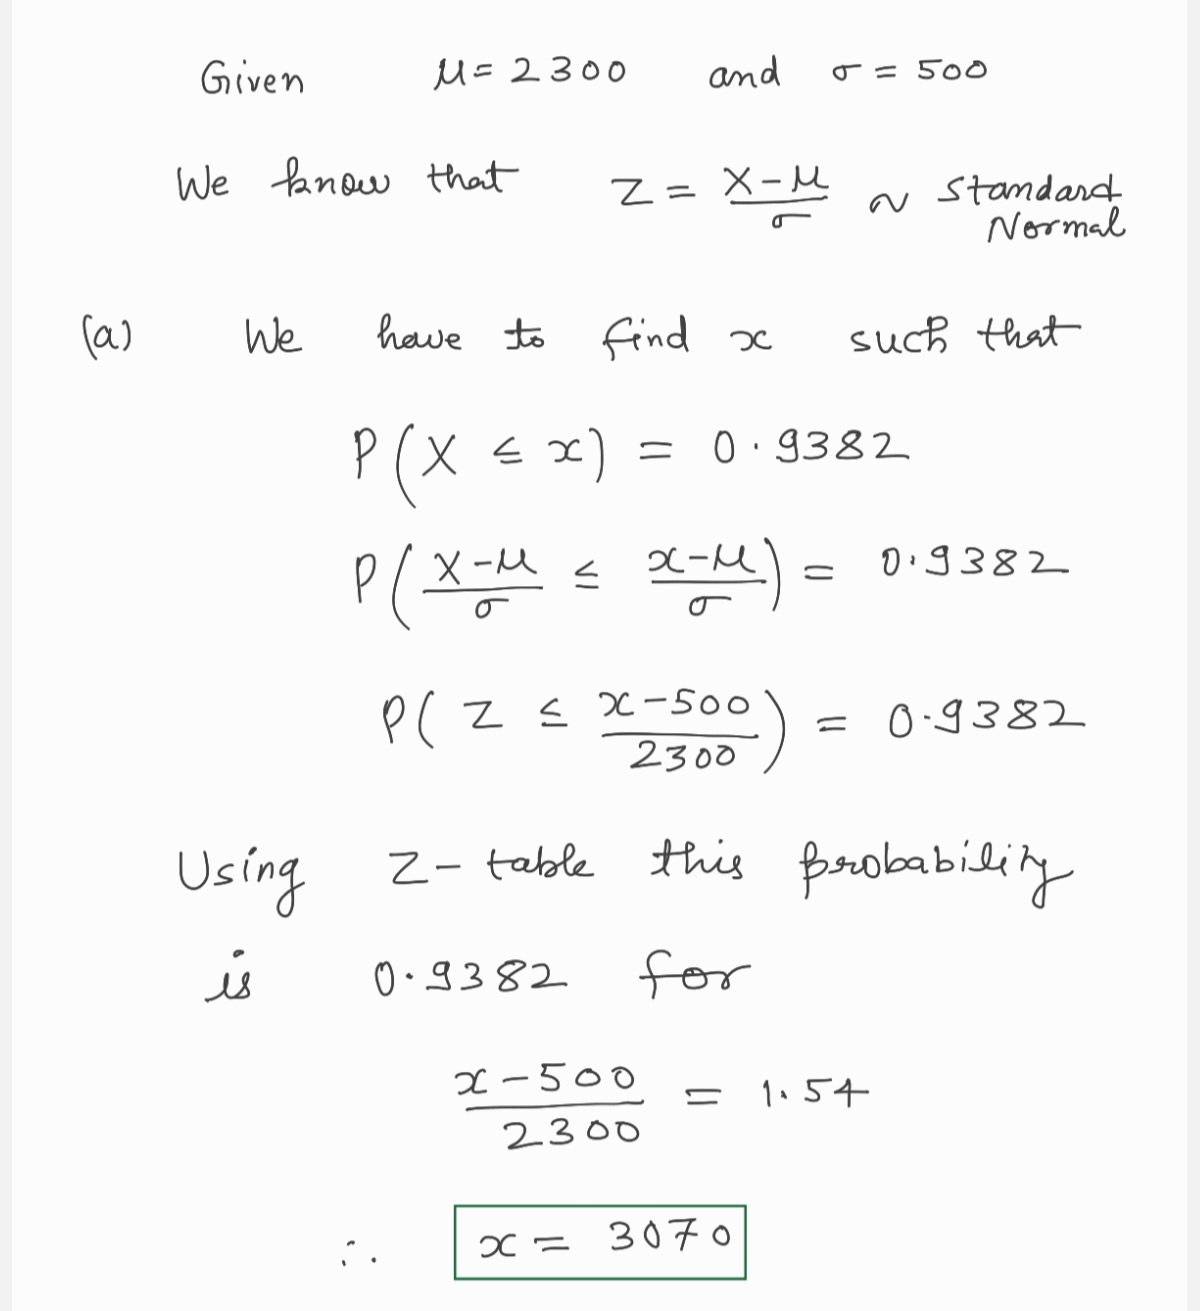 Given μ = 2300 and σ = 500
We know that Z = (X-μ)/σ ~ Standard Normal
(a) We have to find x such that
P(X ≤ x) = 0.9382
P((X-μ)/σ ≤ (x-μ)/σ) = 0.9382
P(Z ≤ (x-500)/2300) = 0.9382
Using Z-table this probability
is 0.9382 for
(x-500)/2300 = 1.54
∴ x = 3070